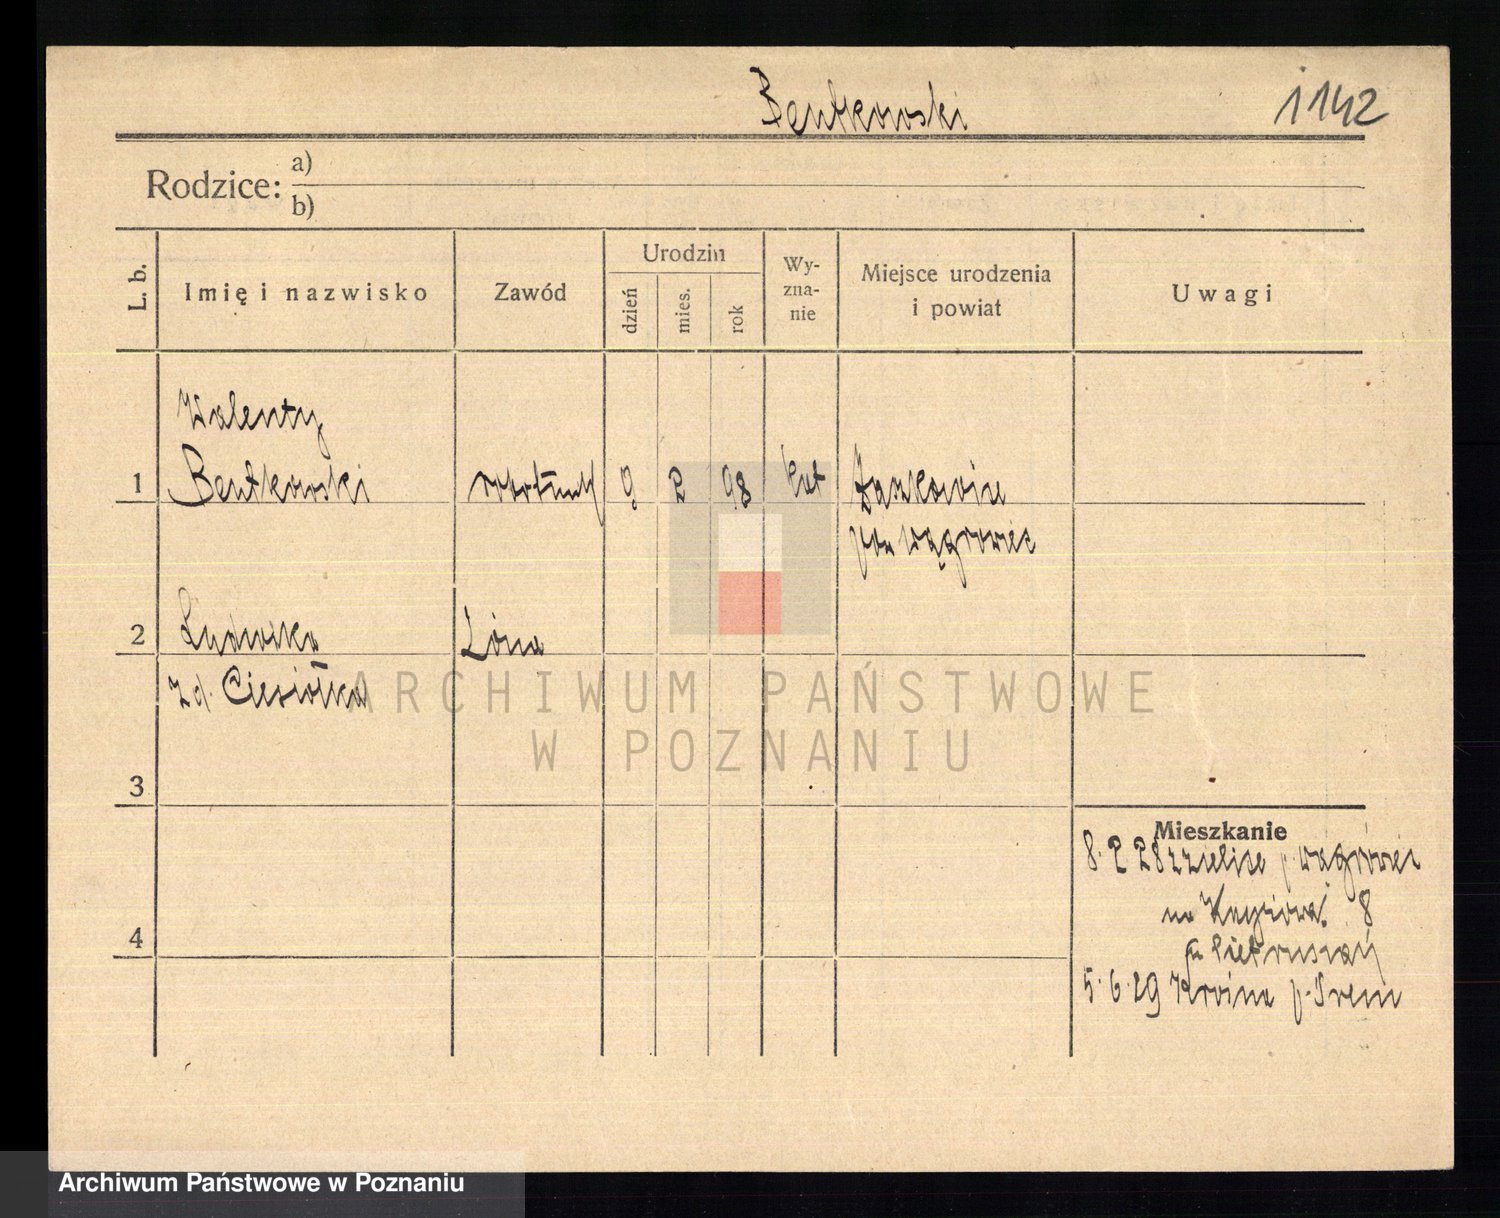 Bentkowski 1142
Rodzice: a)
b)
L. b. Imię i nazwisko Zawód Urodzin dzień mies. rok Wy-zna-nie Miejsce urodzenia i powiat Uwagi
Walenty
1 Bentkowski robotnik 9 2 98 kat
pow Wągrowiec
2 Ludwika żona
z d. Ciesiółka
ARCHIWUM PAŃSTWOWE
W POZNANIU
3
Mieszkanie
8. 2 28 z p. Wągrowiec
na 8
4
5. 6. 29 p. Śrem
Archiwum Państwowe w Poznaniu